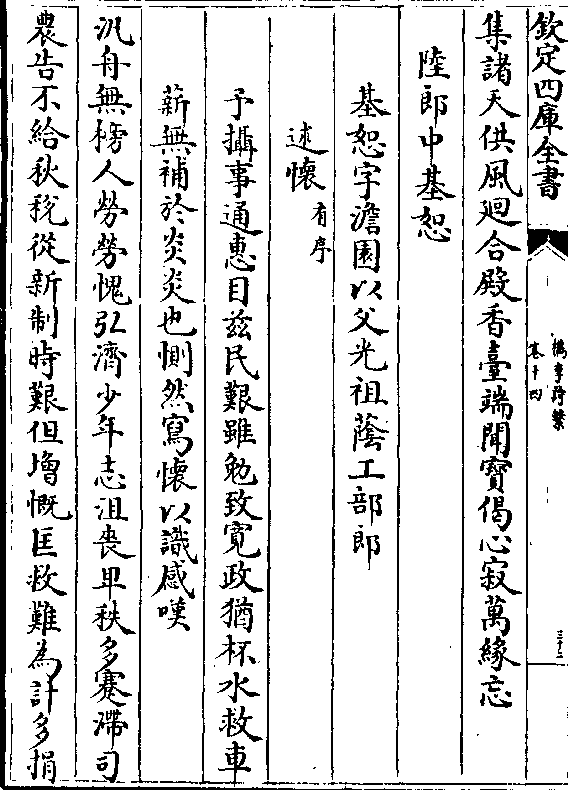 欽定四庫全書
檇李詩繫
卷十四
三十二
集諸天供風迴合殿香臺端聞寳偈心寂萬緣忘
陸郎中基恕
基恕字澹園以父光祖蔭工部郎
述懷有序
予攝事通惠目兹民艱雖勉致寛政猶杯水救車
薪無補於炎炎也惻然寫懷以識感嘆
汎舟無榜人勞勞愧弘濟少年志沮喪早秩多蹇滯司
農告不給秋稅從新制時艱但增慨匡救難為計多捐